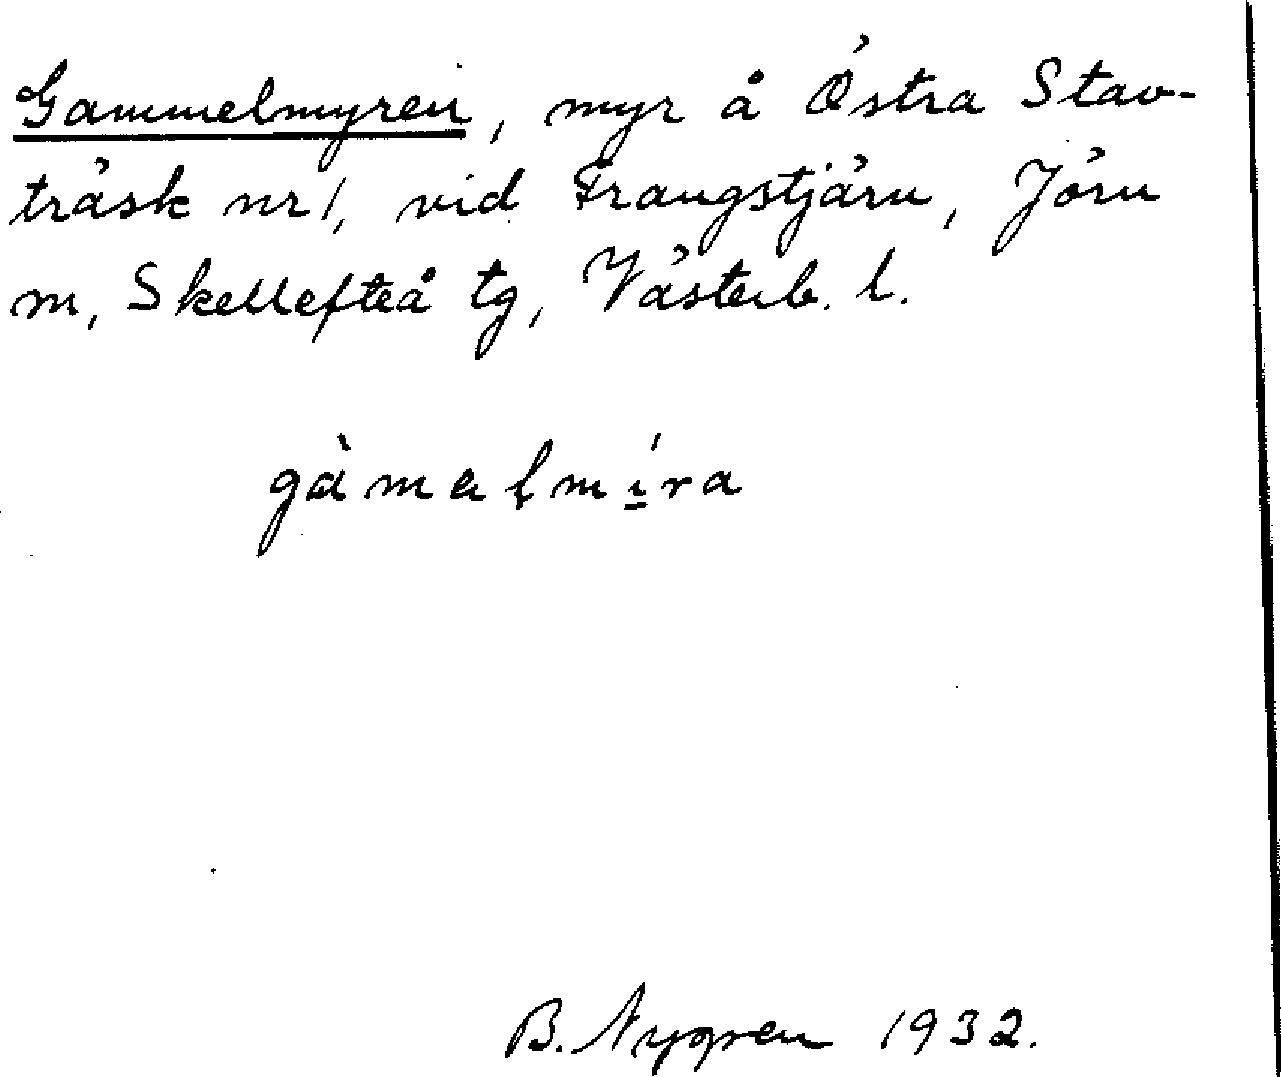 Gammelmyren, myr å Östra Stav-
träsk nr 1, vid Frangstjärn, Jörn
m, Skellefteå tg, Västerb. l.
gàmalmíra
B. Nygren 1932.